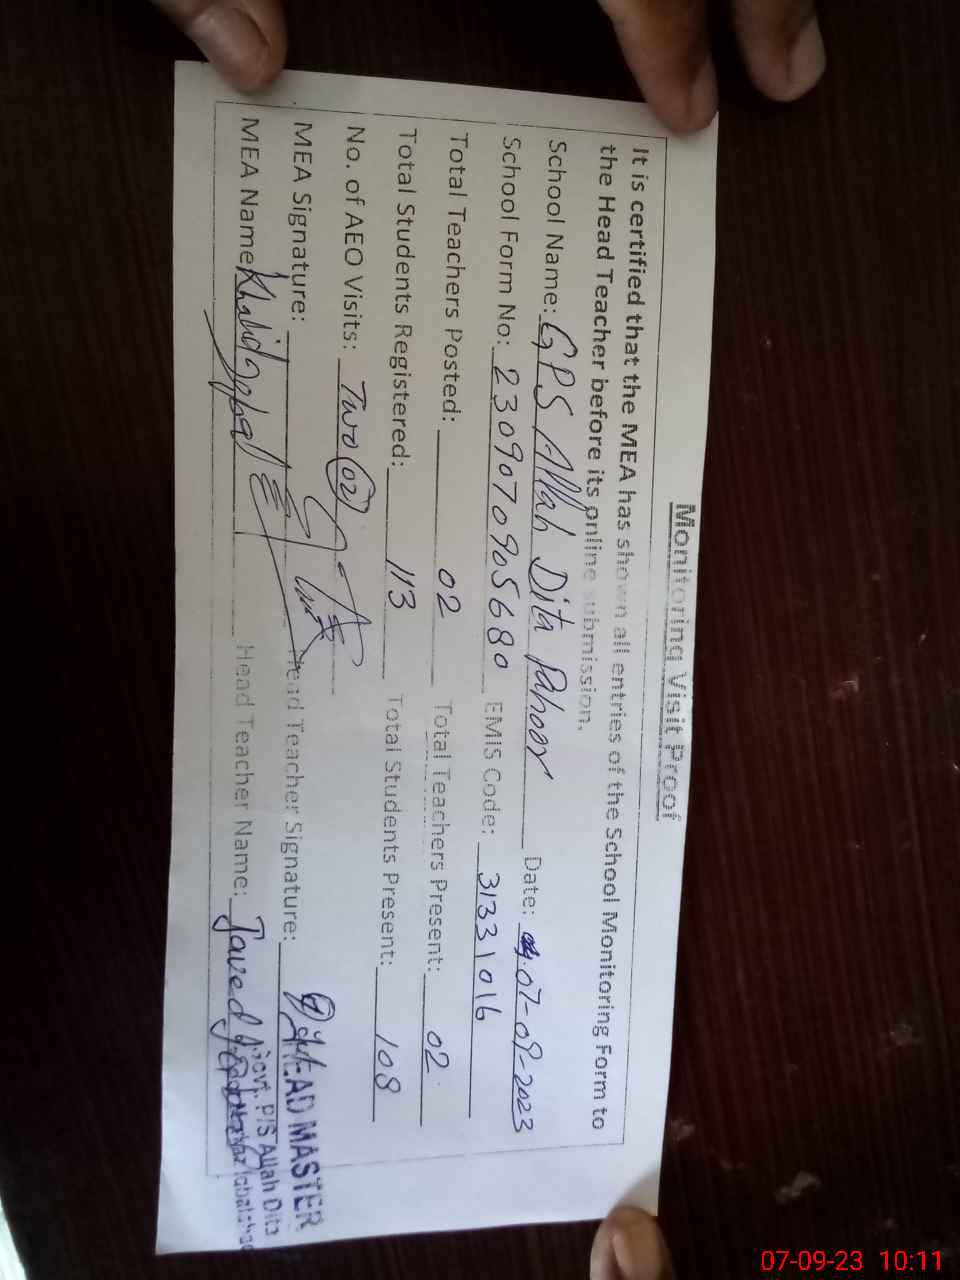 Monitoring Visit Proof
It is certified that the MEA has shown all entries of the School Monitoring Form to
the Head Teacher before its online submission.
School Name: GPS Allah Dita Pahoor Date: 07-09-2023
School Form No: 2309070905680 EMIS Code: 31331016
Total Teachers Posted: 02 Total Teachers Present: 02
Total Students Registered: 113 Total Students Present: 108
No. of AEO Visits: Two (02)
MEA Signature: Head Teacher Signature:
HEAD MASTER
MEA Name: Khalid Iqbal Head Teacher Name: Javed
Govt. P/S Allah Ditta
07-09-23 10:11